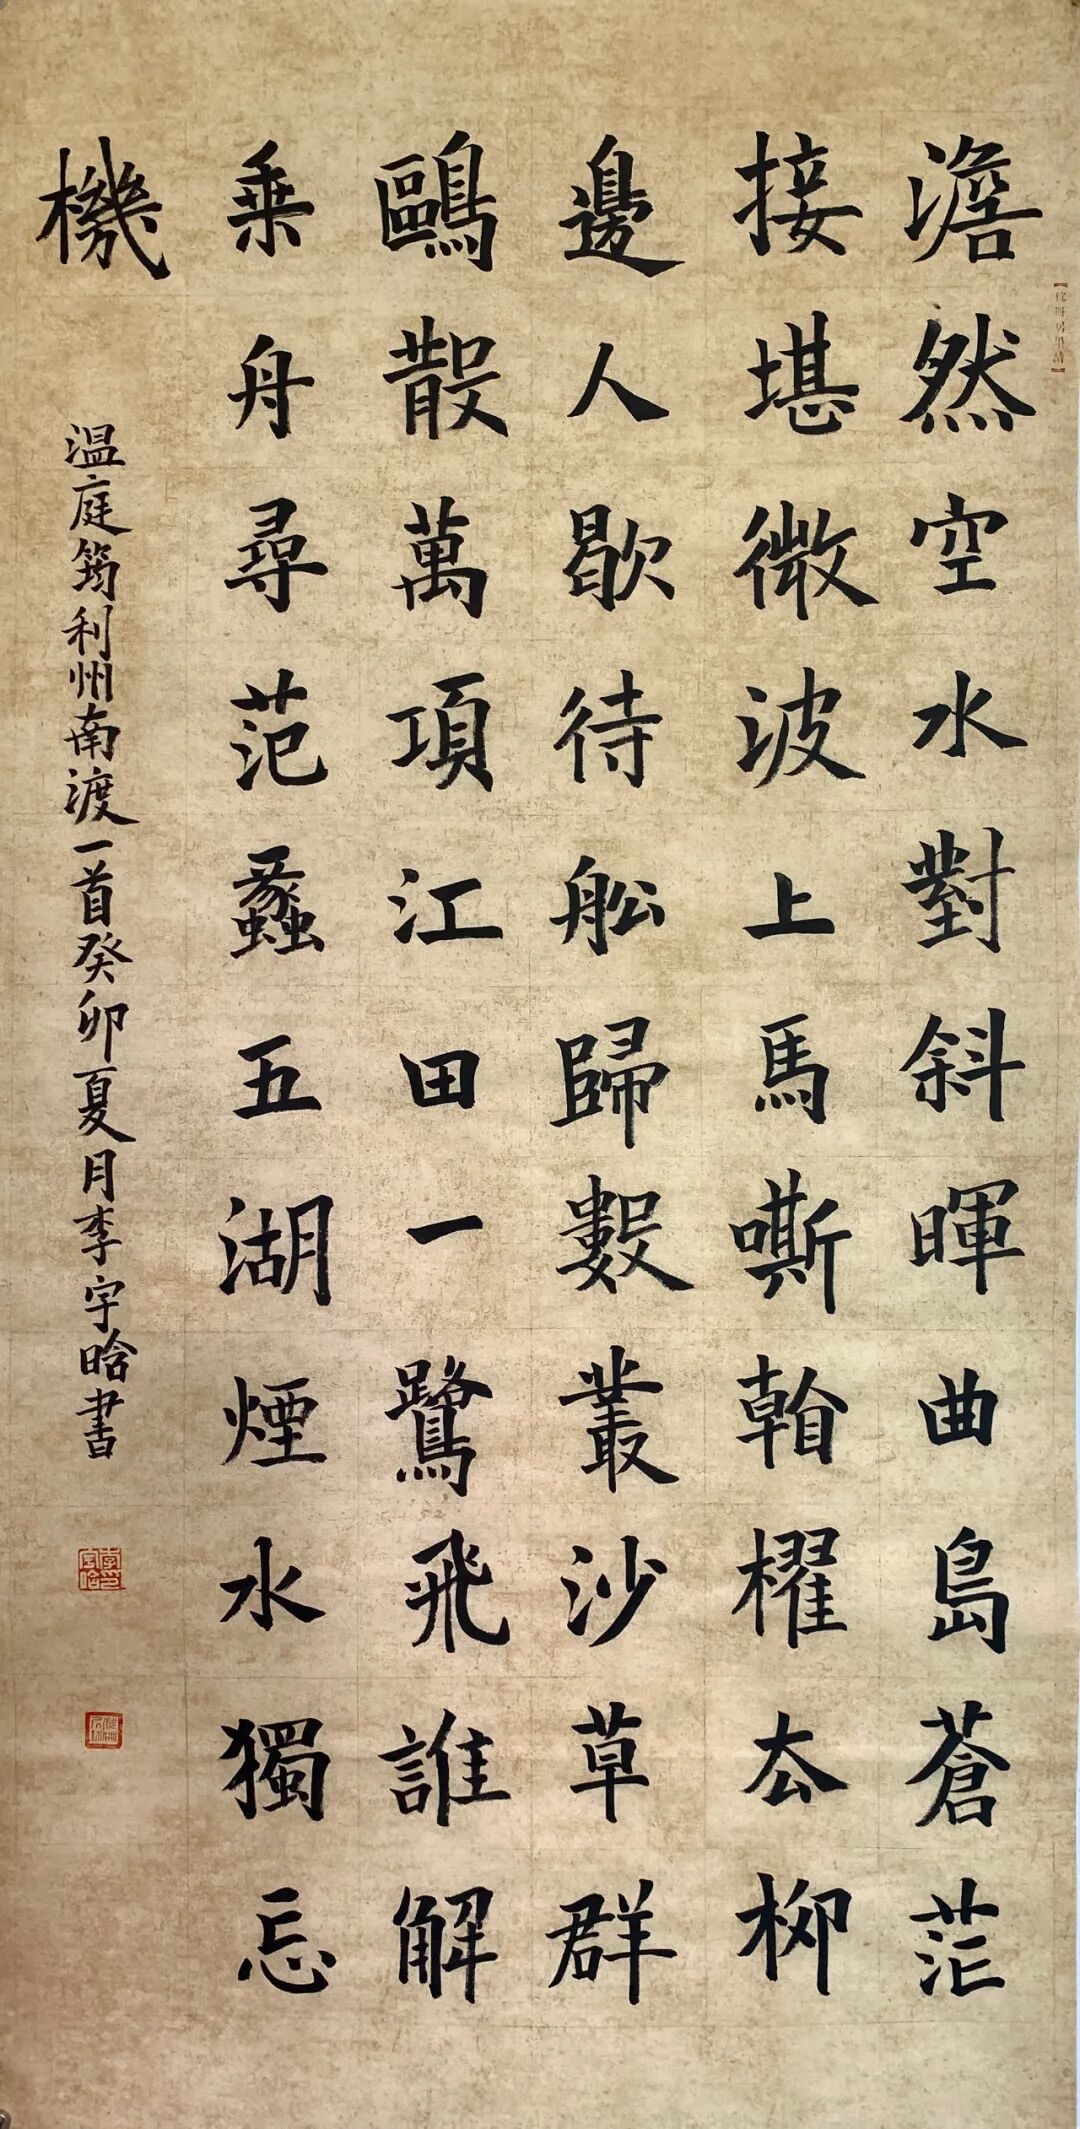 澹然空水對斜暉曲島蒼茫
接堪微波上馬嘶看櫂厺柳
邊人歇待舩歸數叢沙草群
鷗散萬項江田一鷺飛誰解
乘舟尋范蠡五湖煙水獨忘
機
温庭筠利州南渡一首癸卯夏月李宇晗書